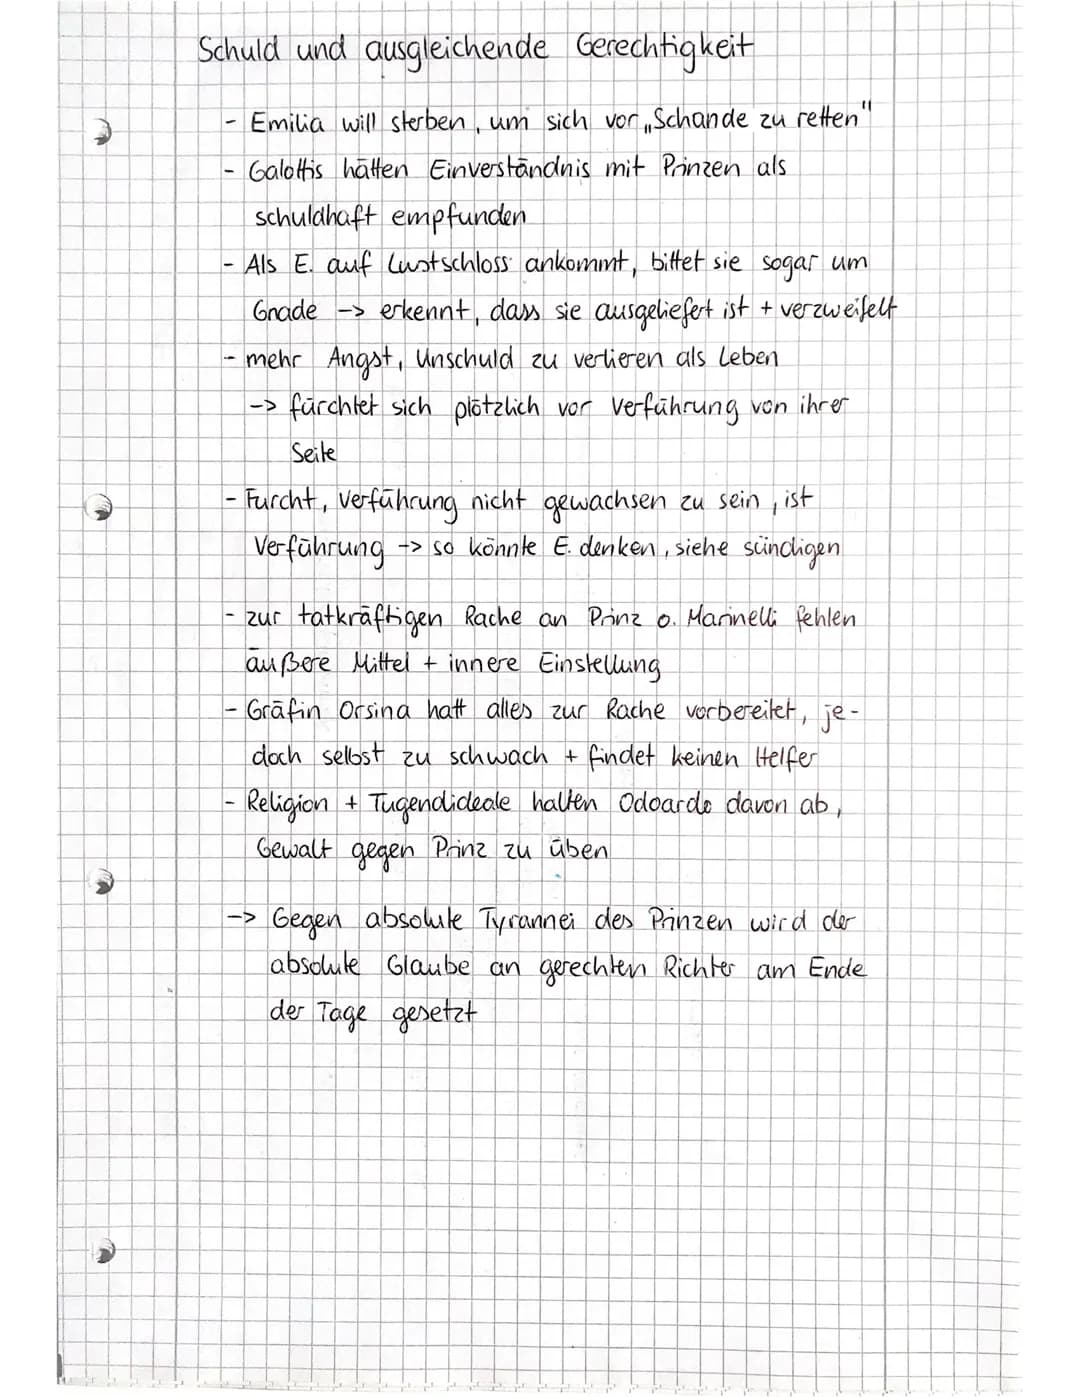 Schuld und ausgleichende Gerechtigkeit
- Emilia will sterben, um sich vor „Schande zu retten"
- Galottis hätten Einverständnis mit Prinzen als
schuldhaft empfunden
- Als E. auf Lustschloss ankommt, bittet sie sogar um
Gnade -> erkennt, dass sie ausgeliefert ist + verzweifelt
- mehr Angst, Unschuld zu verlieren als Leben
-> fürchtet sich plötzlich vor Verführung von ihrer
Seite
- Furcht, Verführung nicht gewachsen zu sein, ist
Verführung -> so könnte E. denken, siehe sündigen
- zur tatkräftigen Rache an Prinz o. Marinelli fehlen
äußere Mittel + innere Einstellung
- Gräfin Orsina hatt alles zur Rache vorbereitet, je-
doch selbst zu schwach + findet keinen Helfer
- Religion + Tugendideale halten Odoardo davon ab,
Gewalt gegen Prinz zu üben
-> Gegen absolute Tyrannei des Prinzen wird der
absolute Glaube an gerechten Richter am Ende
der Tage gesetzt